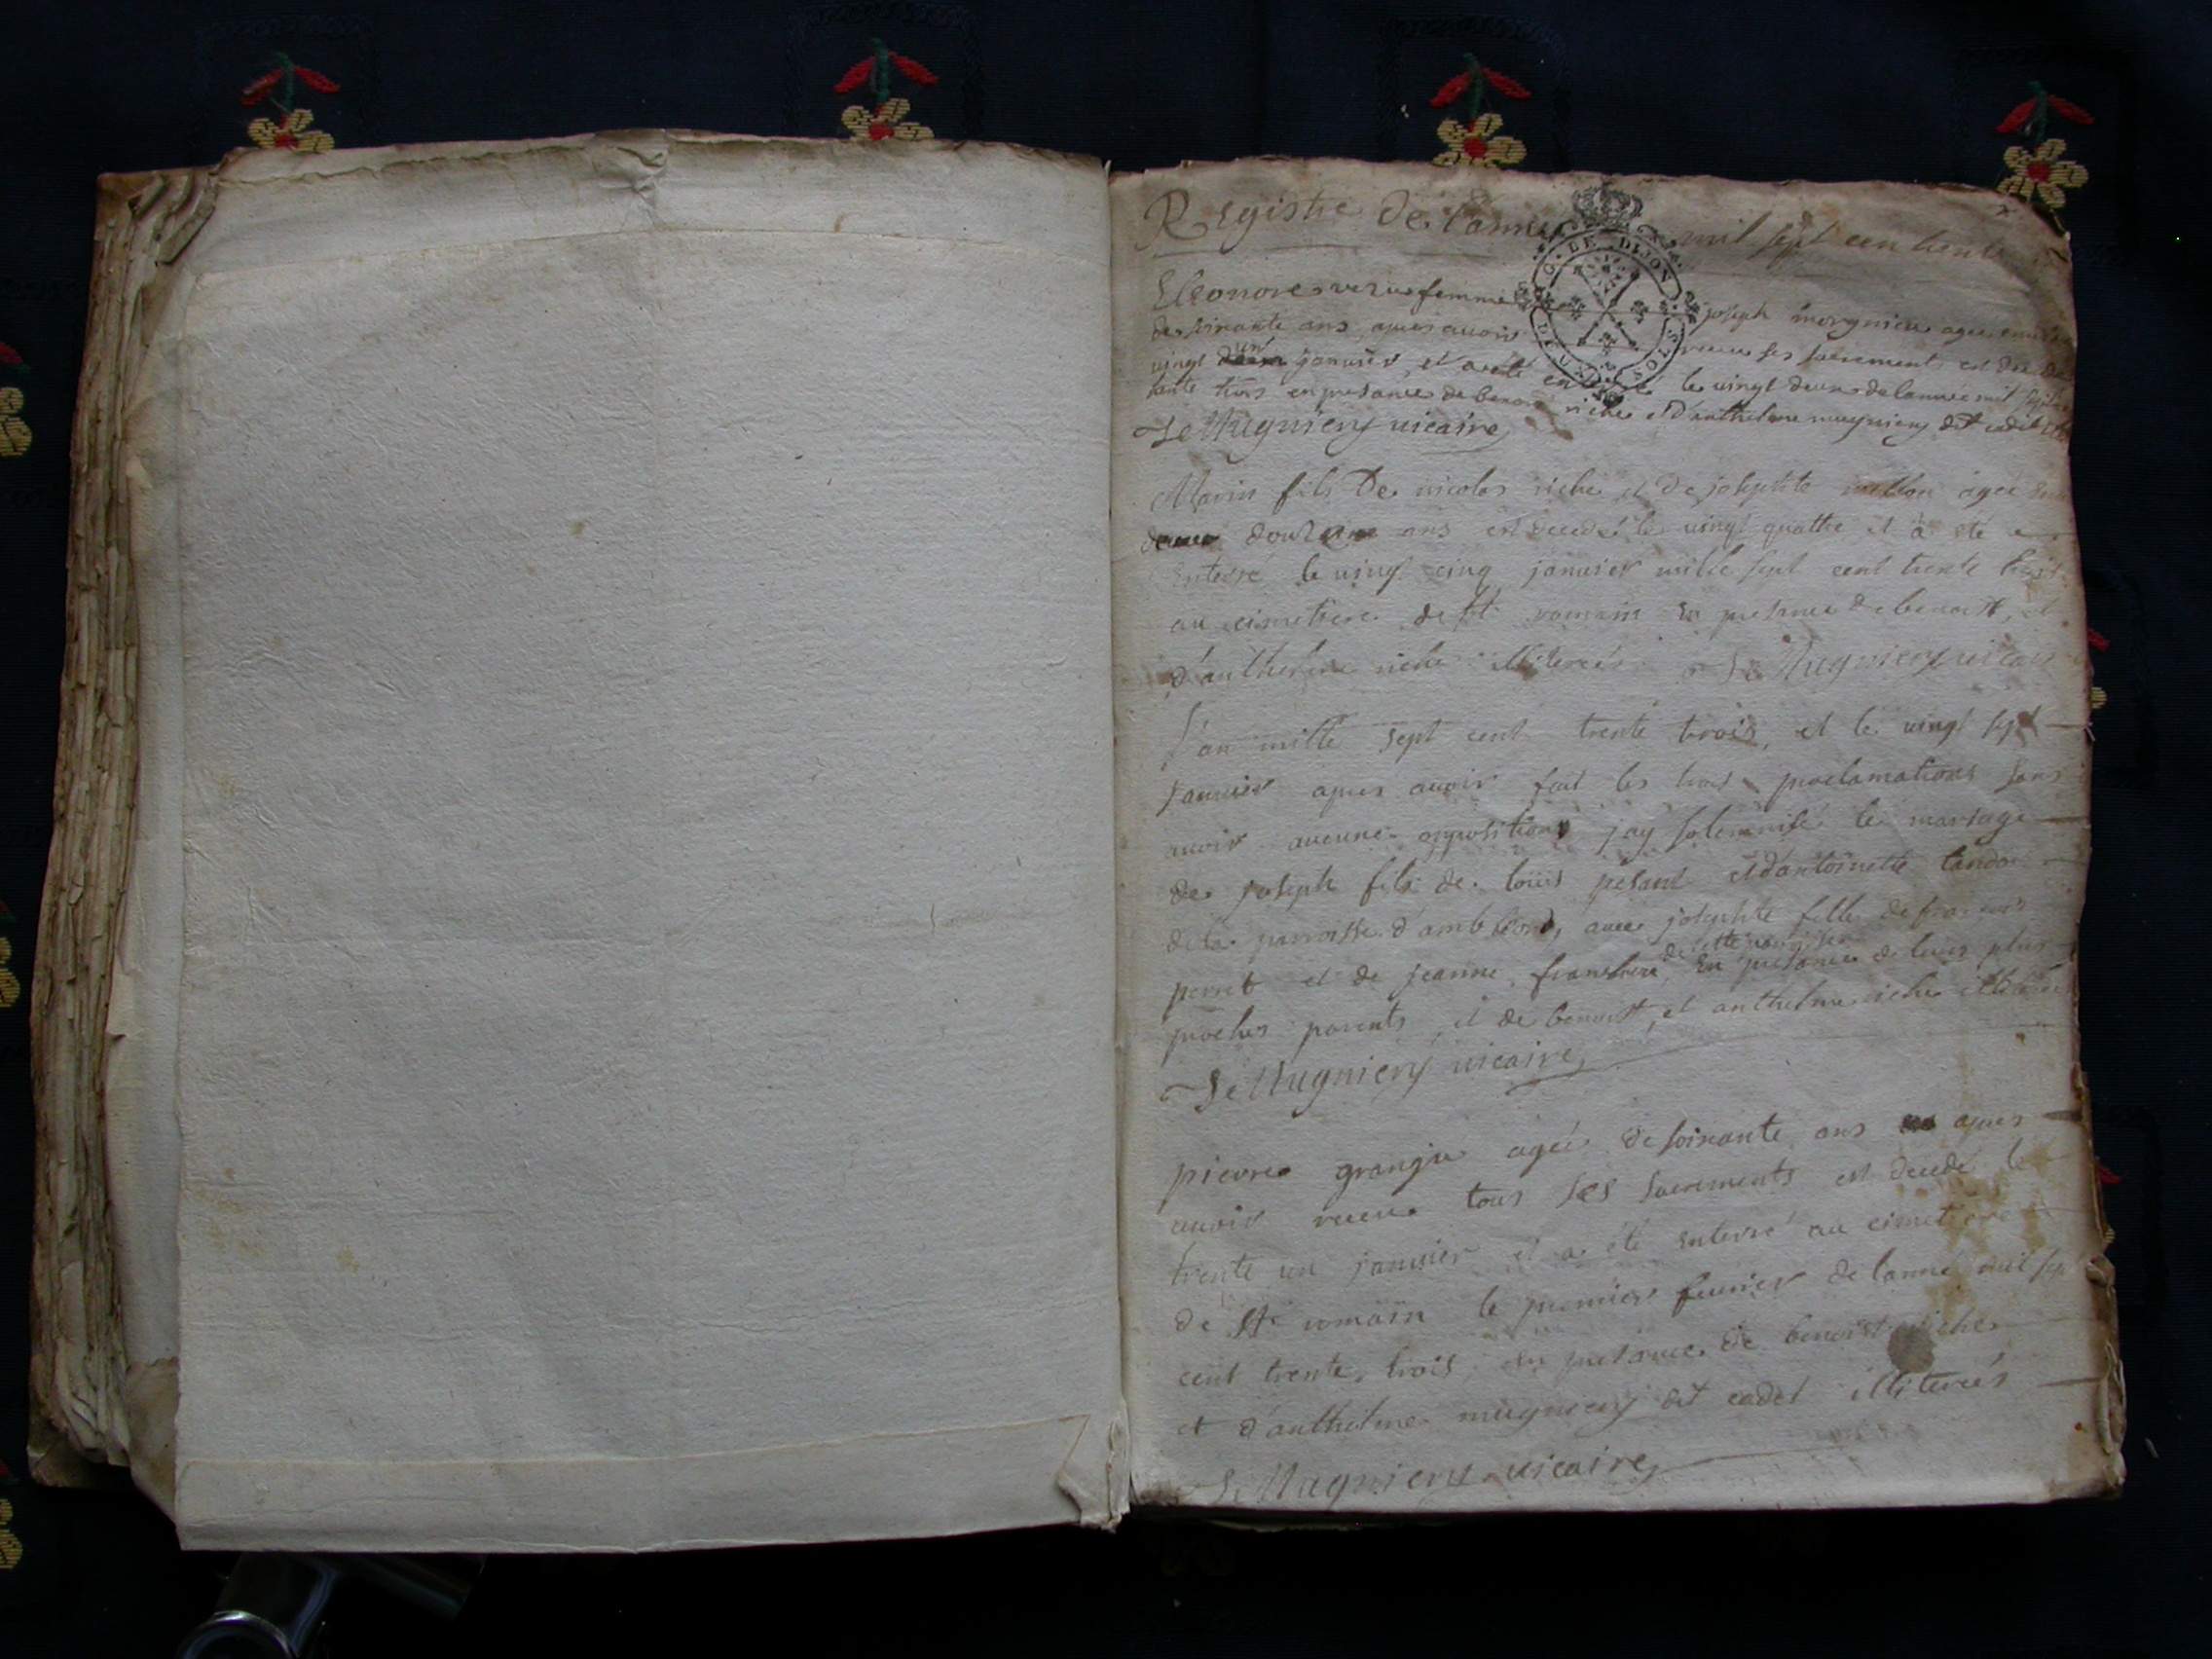 Registre de l'année mil sept cent trente
G. DE DIJON
DEUX SOLS
Eleonore femme joseph agee
de soixante ans, apres avoir receu ses sacrements est
vingt un janvier, et a eté enterré le vingt deux de l'année mil sept
trente trois en presance de benoist riche et d'anthelme mugniery dit cadet
Mugniery vicaire
Marin fils De nicolas riche, et de josephte agée
douze ans est decedé le vingt quattre et à eté
enterré le vingt cinq janvier mille sept cent trente
au cimetiere de st romain en presance de benoist, et
d'anthelme riche illiterés. Mugniery vicaire
L'an mille sept cent trente trois, et le vingt sept
Janvier apres avoir fait les trois proclamations sans
avoir aucune opposition jay solemnisé le mariage
de joseph fils de loüis pesant et d'antoinette
de la parroisse d'ambleond, avec josephte fille de françois
de cette parroisse
perret et de jeanne en presance de leurs plus
proches parents, et de benoist, et anthelme riche
Mugniery vicaire
pierre agée de soixante ans apres
avoir receu tous ses sacrements est decedé le
trente un janvier et a été enterré au cimetiere
de st romain le premier fevrier de l'anné mil sept
cent trente trois, en presance de benoist riche
et d'anthelme mugniery dit cadet illiterés
Mugniery vicaire